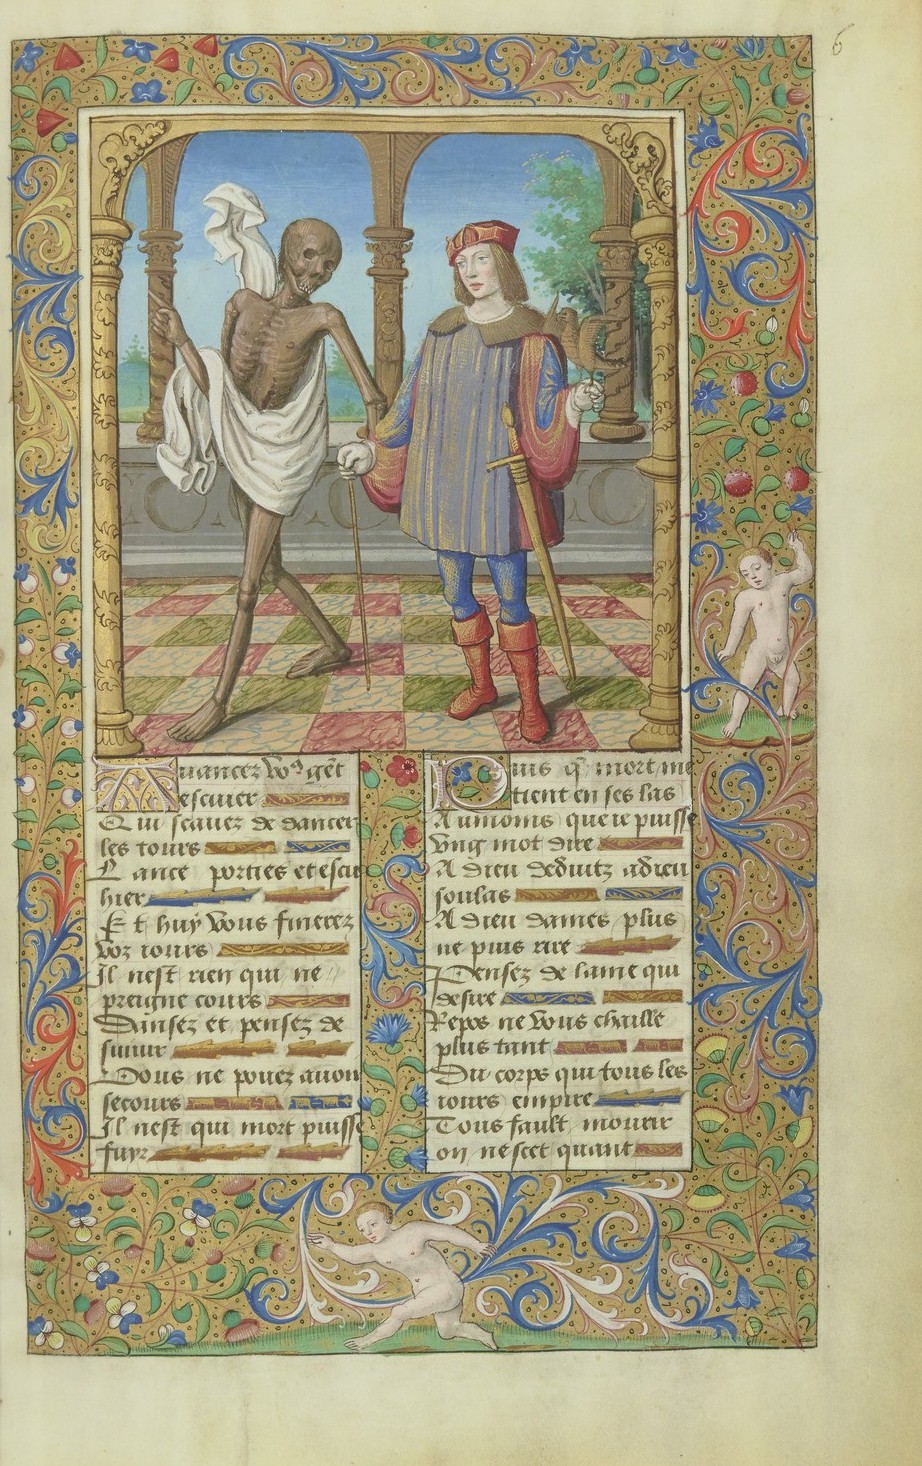 6
Auancez vous gẽt
escuier
Qui scauez de dancer
les tours
Lance porties et escu
hier
Et huy vous finerez
voz iours
Il nest rien qui ne
preigne cours
Dansez et pensez de
suiuir
Vous ne pouez auoir
secours
Il nest qui mort puisse
fuyr
Puis q̃ mort me
tient en ses las
Aumoins que ie puisse
vng mot dire
Adieu deduitz adieu
soulas
Adieu dames plus
ne puis rire
Pensez de lame qui
desire
Repos ne vous chaille
plus tant
Du corps qui tous les
iours empire
Tous fault mourir
on ne scet quant